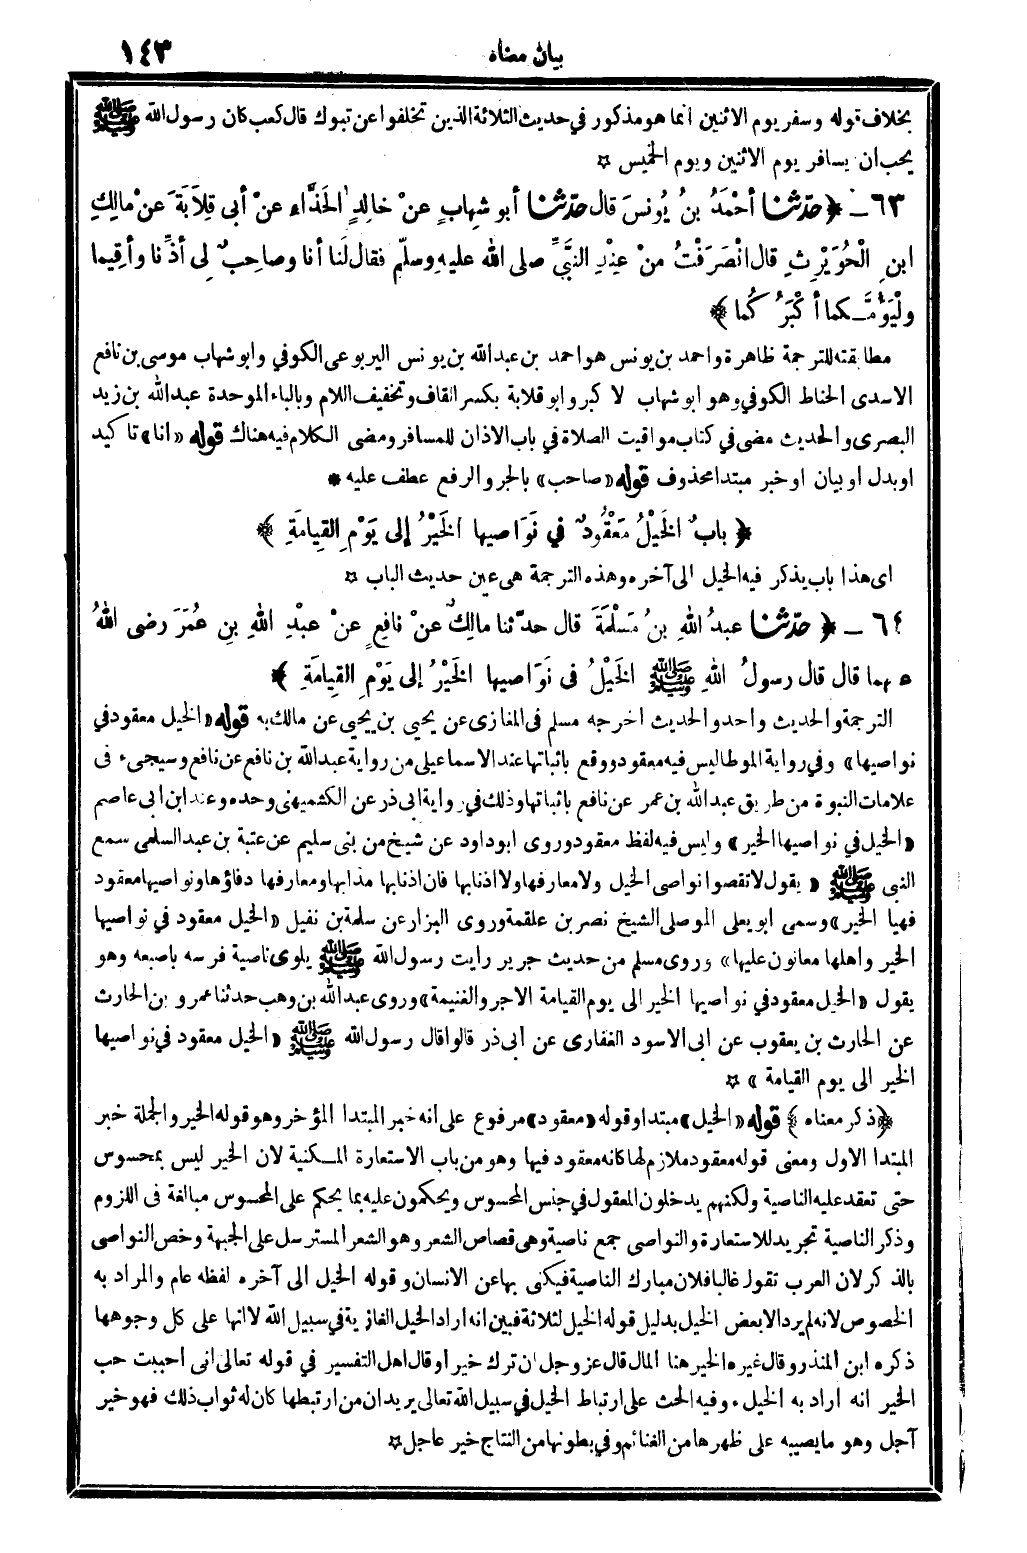 بيان معناه ١٤٣
بخلاف قوله وسفر يوم الاثنين انما هو مذكور في حديث الثلاثة الذين تخلفوا عن تبوك قال كعب كان رسول الله ﷺ
يحب ان يسافر يوم الاثنين ويوم الخميس ☆
٦٣ - ﴿ حدّثنا أحْمَدُ بنُ يُونسَ قال حدّثنا أبو شِهابٍ عنْ خالِدٍ الحَذَّاءِ عنْ أبى قِلاَبَةَ عنْ مالِكِ
ابنِ الْحُوَيْرِثِ قال انْصَرَفْتُ منْ عِنْدِ النَّبيِّ صلى الله عليه وسلّم فقال لَنا أنا وصاحِبٌ لِى أذِّنا وأقِيما
ولْيَؤُمَّـكما أكْبَرُكُما ﴾
مطابقته للترجمة ظاهرة واحمد بن يونس هو احمد بن عبدالله بن يونس اليربوعى الكوفي وابو شهاب موسى بن نافع
الاسدى الحناط الكوفي وهو ابو شهاب الاكبر وابو قلابة بكسر القاف وتخفيف اللام وبالباء الموحدة عبدالله بن زيد
البصرى والحديث مضى في كتاب مواقيت الصلاة في باب الاذان للمسافر ومضى الكلام فيه هناك قوله «انا» تاكيد
او بدل او بيان او خبر مبتدا محذوف قوله «صاحب» بالجر والرفع عطف عليه *
﴿ بابٌ الخَيْلُ مَعْقُودٌ في نَوَاصِيها الخَيْرُ إلى يَوْمِ القِيامَةِ ﴾
اى هذا باب يذكر فيه الخيل الى آخره وهذه الترجمة هى عين حديث الباب ☆
٦٤ - ﴿ حدّثنا عبدُ اللهِ بنُ مَسْلَمَةَ قال حدّثنا مالِكٌ عنْ نافِعٍ عنْ عبْدِ اللهِ بنِ عُمَرَ رضى اللهُ
عنهما قال قال رسولُ اللهِ ﷺ الخَيْلُ فى نَوَاصِيها الخَيْرُ إلى يَوْمِ القِيامَةِ ﴾
الترجمة والحديث واحد والحديث اخرجه مسلم فى المغازى عن يحيى بن يحيى عن مالك به قوله «الخيل معقود في
نواصيها» وفي رواية الموطا ليس فيه معقود ووقع باثباتها عند الاسماعيلى من رواية عبدالله بن نافع عن نافع وسيجىء فى
علامات النبوة من طريق عبدالله بن عمر عن نافع باثباتها وذلك في رواية ابى ذر عن الكشميهنى وحده وعند ابن ابى عاصم
«الخيل في نواصيها الخير» وليس فيه لفظ معقود وروى ابو داود عن شيخ من بنى سليم عن عتبة بن عبد السلمى سمع
النبى ﷺ «يقول لا تقصوا نواصى الخيل ولا معارفها ولا اذنابها فان اذنابها مذابها ومعارفها دفاؤها ونواصيها معقود
فهيا الخير» وسمى ابو يعلى الموصلى الشيخ نصر بن علقمة وروى البزار عن سلمة بن نفيل «الخيل معقود في نواصيها
الخير واهلها معانون عليها» وروى مسلم من حديث جرير رايت رسول الله ﷺ يلوى ناصية فرسه باصبعه وهو
يقول «الخيل معقود في نواصيها الخير الى يوم القيامة الاجر والغنيمة» وروى عبدالله بن وهب حدثنا عمرو بن الحارث
عن الحارث بن يعقوب عن ابى الاسود الغفارى عن ابى ذر قالوا قال رسول الله ﷺ «الخيل معقود في نواصيها
الخير الى يوم القيامة» ☆
﴿ذكر معناه﴾ قوله «الخيل» مبتدا وقوله «معقود» مرفوع على انه خبر المبتدا المؤخر وهو قوله الخير والجملة خبر
المبتدا الاول ومعنى قوله معقود ملازم لها كانه معقود فيها وهو من باب الاستعارة المـكنية لان الخير ليس بمحسوس
حتى تعقد عليه الناصية ولكنهم يدخلون المعقول في جنس المحسوس ويحكمون عليه بما يحكم على المحسوس مبالغة فى اللزوم
وذكر الناصية تجريد للاستعارة والنواصى جمع ناصية وهى قصاص الشعر وهو الشعر المسترسل على الجبهة وخص النواصى
بالذكر لان العرب تقول غالبا فلان مبارك الناصية فيكنى بها عن الانسان وقوله الخيل الى آخره لفظه عام والمراد به
الخصوص لانه لم يرد الا بعض الخيل بدليل قوله الخيل لثلاثة فبين انه اراد الخيل الغازية في سبيل الله لا انها على كل وجوهها
ذكره ابن المنذر وقال غيره الخير هنا المال قال عز وجل ان ترك خيرا وقال اهل التفسير في قوله تعالى انى احببت حب
الخير انه اراد به الخيل، وفيه الحث على ارتباط الخيل في سبيل الله تعالى يريد ان من ارتبطها كان له ثواب ذلك فهو خير
آجل وهو ما يصيبه على ظهرها من الغنائم وفي بطونها من النتاج خير عاجل ☆